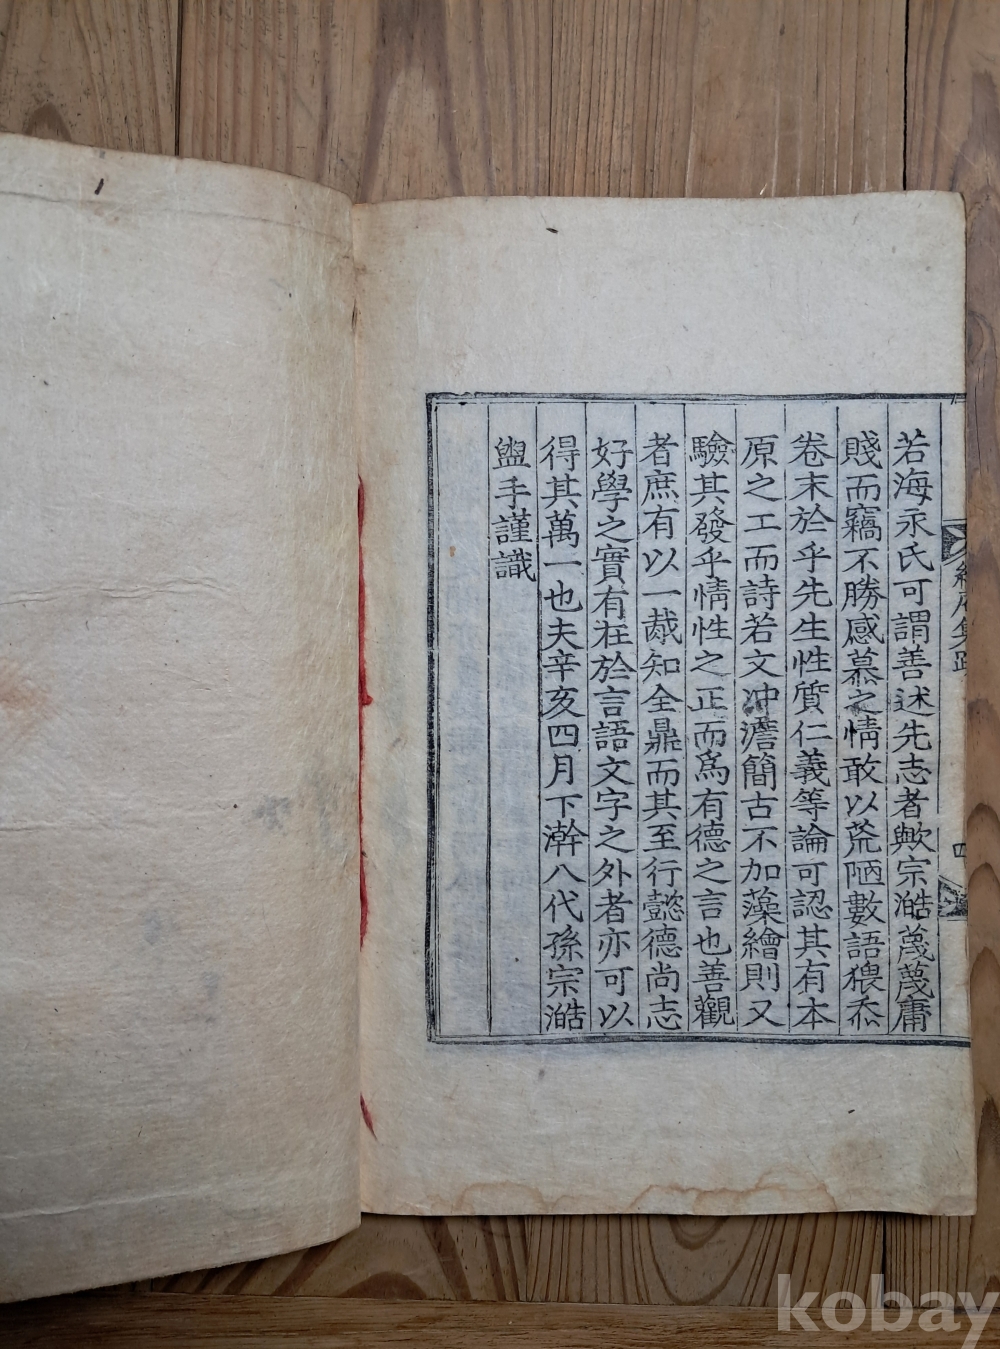 若海永氏可謂善述先志者歟宗澔蔑蔑庸
賤而竊不勝感慕之情敢以荒陋數語猥忝
卷末於乎先生性質仁義等論可認其有本
原之工而詩若文冲澹簡古不加藻繪則又
驗其發乎情性之正而爲有德之言也善觀
者庶有以一胾知全鼎而其至行懿德尚志
好學之實有在於言語文字之外者亦可以
得其萬一也夫辛亥四月下澣八代孫宗澔
盥手謹識
kobay